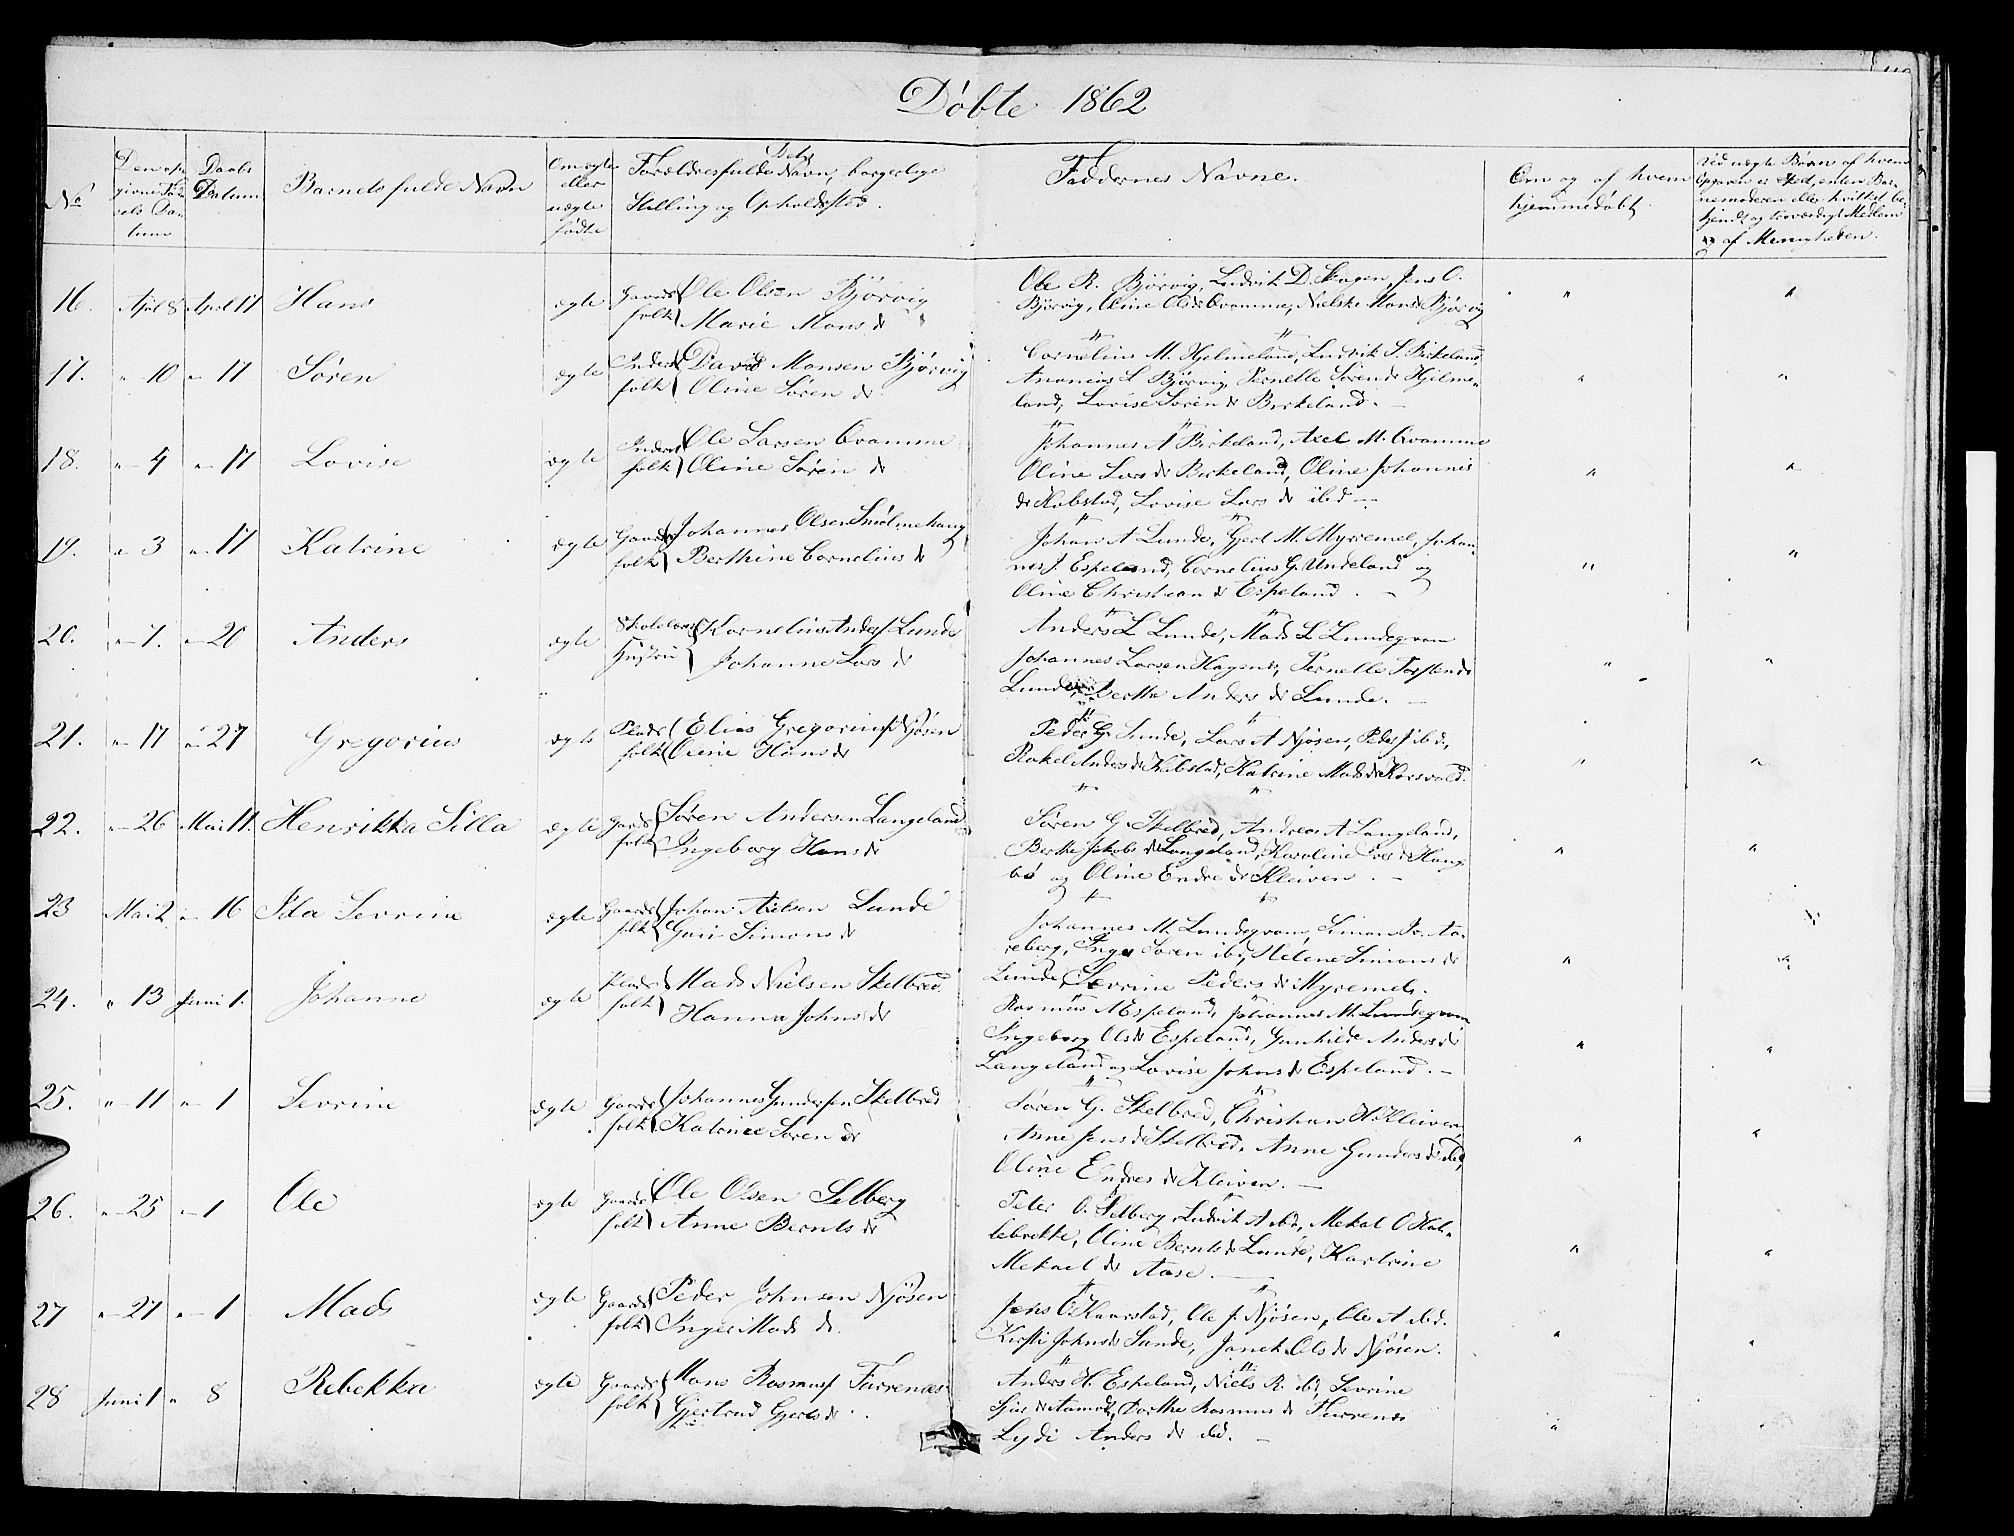 Døbte 1862
No
Den op-
givne Fød-
sels Da-
tum
Daabs
Datum
Barnets fulde Navn
Om ægte
eller
uægte
fødte
Forældres fulde Navn, Dets borgerlige
Stilling og Opholdssted.
Faddernes Navne.
Om og af hvem
hjemmedøbt
Ved uægte Børn af hvem
Opgaven er sked, enten Bar-
nemoderen eller hvilket be-
kjendt og troværdigt Medlem
af Menigheden.
16. April 8 April 17 Hans ægte Gaards folk Ole Olsen Bjørvig
Marie Mons dr
Ole R. Bjørvig, Ludvik D. Skagen, Jens O.
Bjørvig, Oline Ols dr Qvamme, Nielske Mons dr Bjørvig
17. " 10 " 17 Søren ægte Inderst folk David Monsen Bjørvig
Oline Søren dr
Cornelius M. Hjelmeland, Ludvik S. Birkeland,
Ananias S Bjørvig, Pernelle Sørends Hjelme-
land, Lovise Søren dr Birkeland. —
18. " 4 " 17 Lovise ægte Inderst folk Ole Larsen Qvamme
Oline Søren dr
Johannes A Birkeland, Axel M. Qvamme
Oline Lars dr Birkeland, Oline Johannis
dr Kobstad, Lovise Lars dr ibid —
19. " 3 " 17 Katrine ægte Gaards folk Johannes Olsen Smølmehaug
Berthine Cornelius dr
Johan A Lunde, Gjert M. Myrremel, Johan-
nes J. Espeland, Cornelius G. Undeland og
Oline Christian dr Espeland. —
20. " 7. " 20 Anders ægte Skolelær Hustru Kornelius Anders. Lunde
Johanne Lars dr
Anders L Lunde, Mads L Lundegram
Johannes Larsen Hagen, Pernelle Torstends
Lunde, Berthe Anders dr Lunde. —
21. " 17 " 27 Gregorius ægte Plads folk Elias Gregorius. Njøsen
Oline Hans dr
Peder G. Lunde, Lars A Njøsen, Peder J ibid,
Rakel Anders dr Kobstad, Katrine Mads dr Korsvold.
22. " 26 Mai 11. Henrikka Silla ægte Gards folk Søren Andersen Langeland
Ingeborg Hans dr
Søren G. Skelbred, Andreas A Langeland,
Berthe Jakobs dr Langeland, Karoline Iver dr Haug-
bø og Oline Endre dr Kleiven. —
23 Mai 2. " 16 Ida Sevrine ægte Gaards folk Johan Axelsen Lunde
Guri Simons dr
Johannes M. Lundegram, Simon Aa-
reberg, Inga Søren ib, Helene Simons dr
Lunde, Sevrine Peders dr Myremel.
24. " 13 Juni 1. Johanne ægte Plads folk Mads Nielsen Skelbred
Hanna Johns dr
Rasmus A Espeland, Johannes M. Lundegram
Ingeborg Ols dr Espeland, Gunhilde Anders dr
Langeland og Lovise Johns dr Espeland. —
25. " 11 " 1 Sevrine ægte Gaards folk Johannes Gundersen Skelbred
Katrine Søren dr
Søren G. Skelbred, Christian H Kleiven,
Anne Jens dr Skelbred, Anne Gunders dr ibid,
Oline Endres dr Kleiven. —
26. " 25 " 1 Ole ægte Gaards folk Ole Olsen Selberg
Anne Bernts dr
Peter O. Selberg, Ludvik A ibid, Mekal O Hal-
lebrotte, Oline Bernts dr Lunde, Kartrine
Mekael dr Aase. —
27 " 27 " 1 Mads ægte Gaards folk Peder Johnsen Njøsen
Inger Mads dr.
Jens O Kaarstad, Ole J. Njøsen, Ole A ibid.
Kirsti Johns dr Sande, Janek Ols dr Njøsen.
28 Juni 1 " 8 Rebekka ægte Gaards folk Hans Rasmus. Farrenæs
Gjertrud Gjerts dr.
Anders H. Espeland, Niels R. ib, Sevrine
Sjur dr Aamot, Dorthe Rasmus dr Furrenes
Lydi Anders dr ibid. —